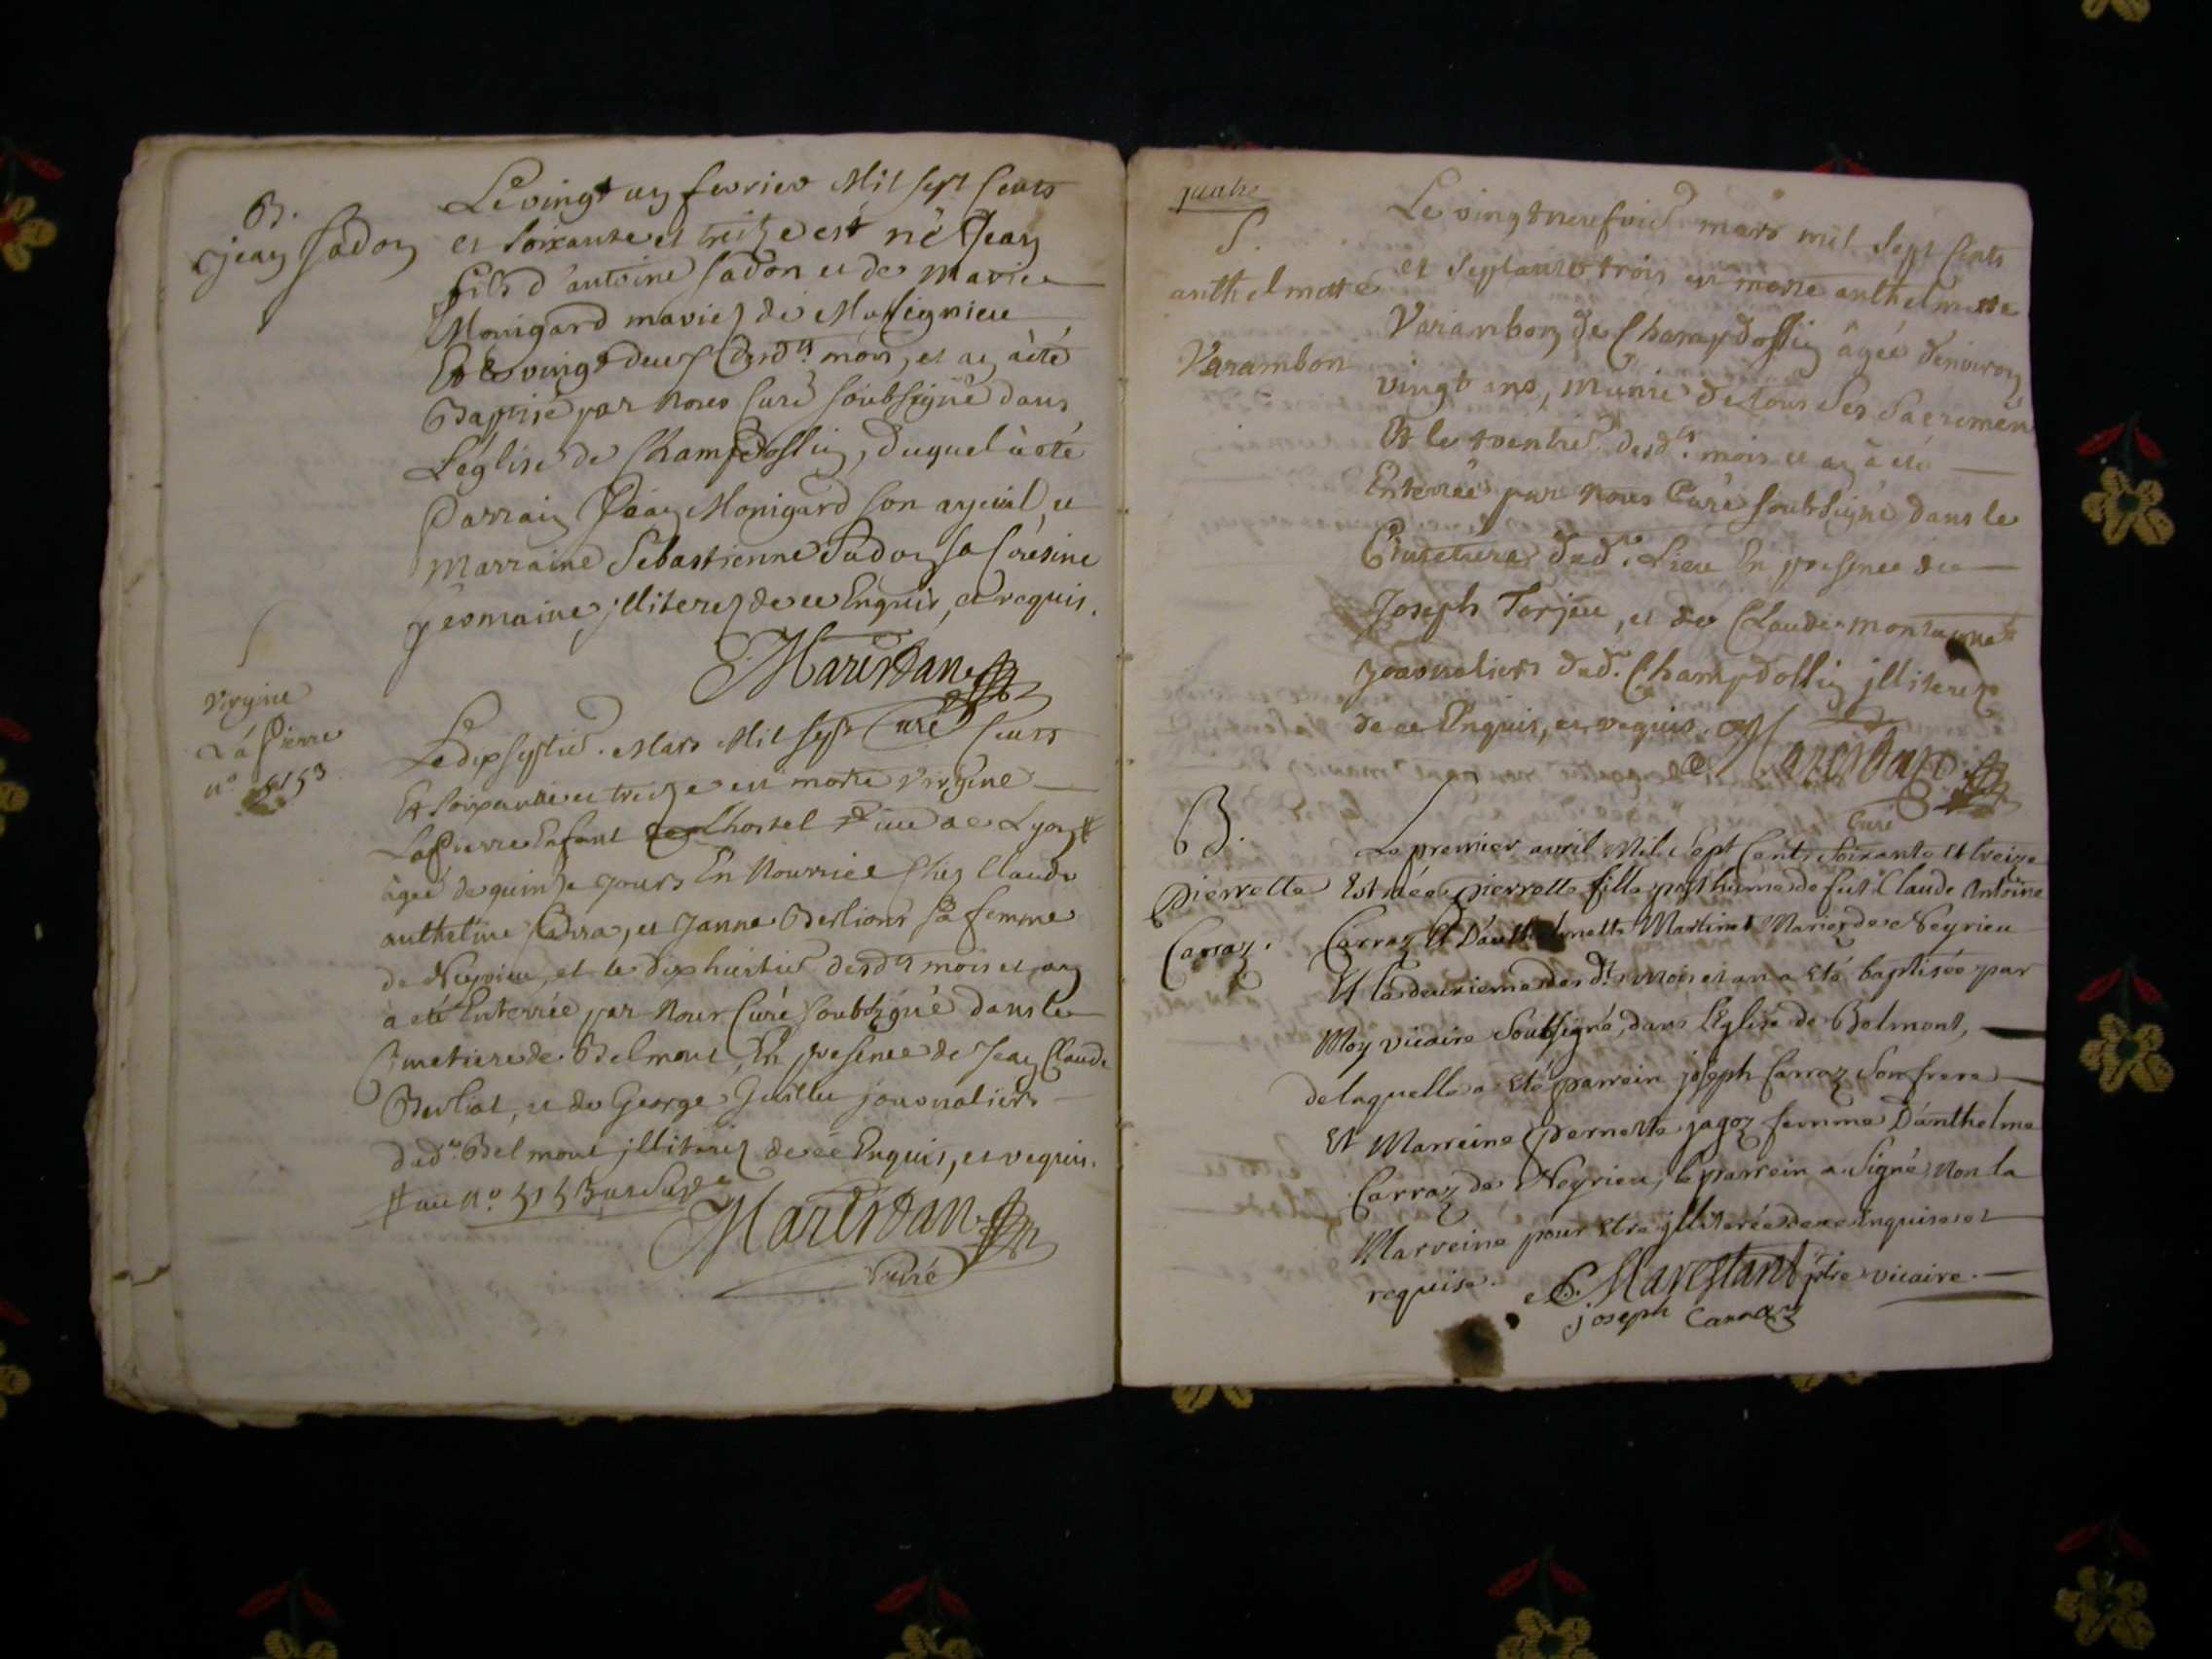 B.
jean sadon
Le vingt un fevrier Mil sept Cents
et soixante et treize est né Jean
fils d'antoine sadon et de Marie
Monigard mariez de Massignieu
Et le vingt deux desd.ts mois, et an à été
Baptisé par Nous Curé soubsigné dans
L'église de Champdossin, duquel à été
Parrain Jean Monigard son ayeul, et
Marraine Sebastienne Sadon sa Cousine
germaine jlliterez de ce Enquis, et requis.
Marestan
Curé
S
Virgine
La Pierre
n° 5153
Le dix septie. Mars Mil sept Cents
Et soixante et treize est morte Virgine
La Pierre Enfant de Lhostel Dieu de Lyon #
àgée de quinze jours En Nourrice Chez Claude
anthelme Carra, et Janne Berliond sa femme
de Neyrieu, et le dix huitie desd.ts mois et an
à eté Enterrée par Nous Curé soubsigné dans le
Cimetiere de Belmont, En presence de Jean Claude
Berliot, et de George Guillet journaliers
dud.t Belmont jlliterez de ce Enquis, et requis.
# au n° 5153
Marestan
Curé
quatre
S.
anthelmette
Varambon
Le vingt neufvie mars mil sept Cents
et septante trois est morte anthelmette
Varambon de Champdossin âgée d'environ
vingt ans, munie de tous ses sacremen
Et le trentie desd.ts mois et an à été
Enterrée par Nous Curé soubsigné dans le
Cimetiere dud. Lieu En presence de
Joseph Torjeu, et de Claude montagnet
journaliers dud. Champdossin jlliterez
de ce Enquis, et requis. Marestan
Curé
B.
Pierrette
Carraz.
Le premier avril Mil Sept Cents Soixante et treize
Est née Pierrette fille posthume de feu Claude Antoine
Carraz Et D'anthelmette Martinet Mariez de Neyrieu
Et le deuxieme des d.ts mois et an a Eté baptisée par
Moy vicaire Soubsigné, dans L'Eglise de Belmont,
de laquelle a Eté parrein joseph Carraz Son frere
Et Marreine Pernette jagoz femme D'anthelme
Carraz de Neyrieu, le parrein a Signé, Non la
Marreine pour Etre jlliterée de ce Enquise et
requise. Marestant ptre vicaire.
joseph Carraz